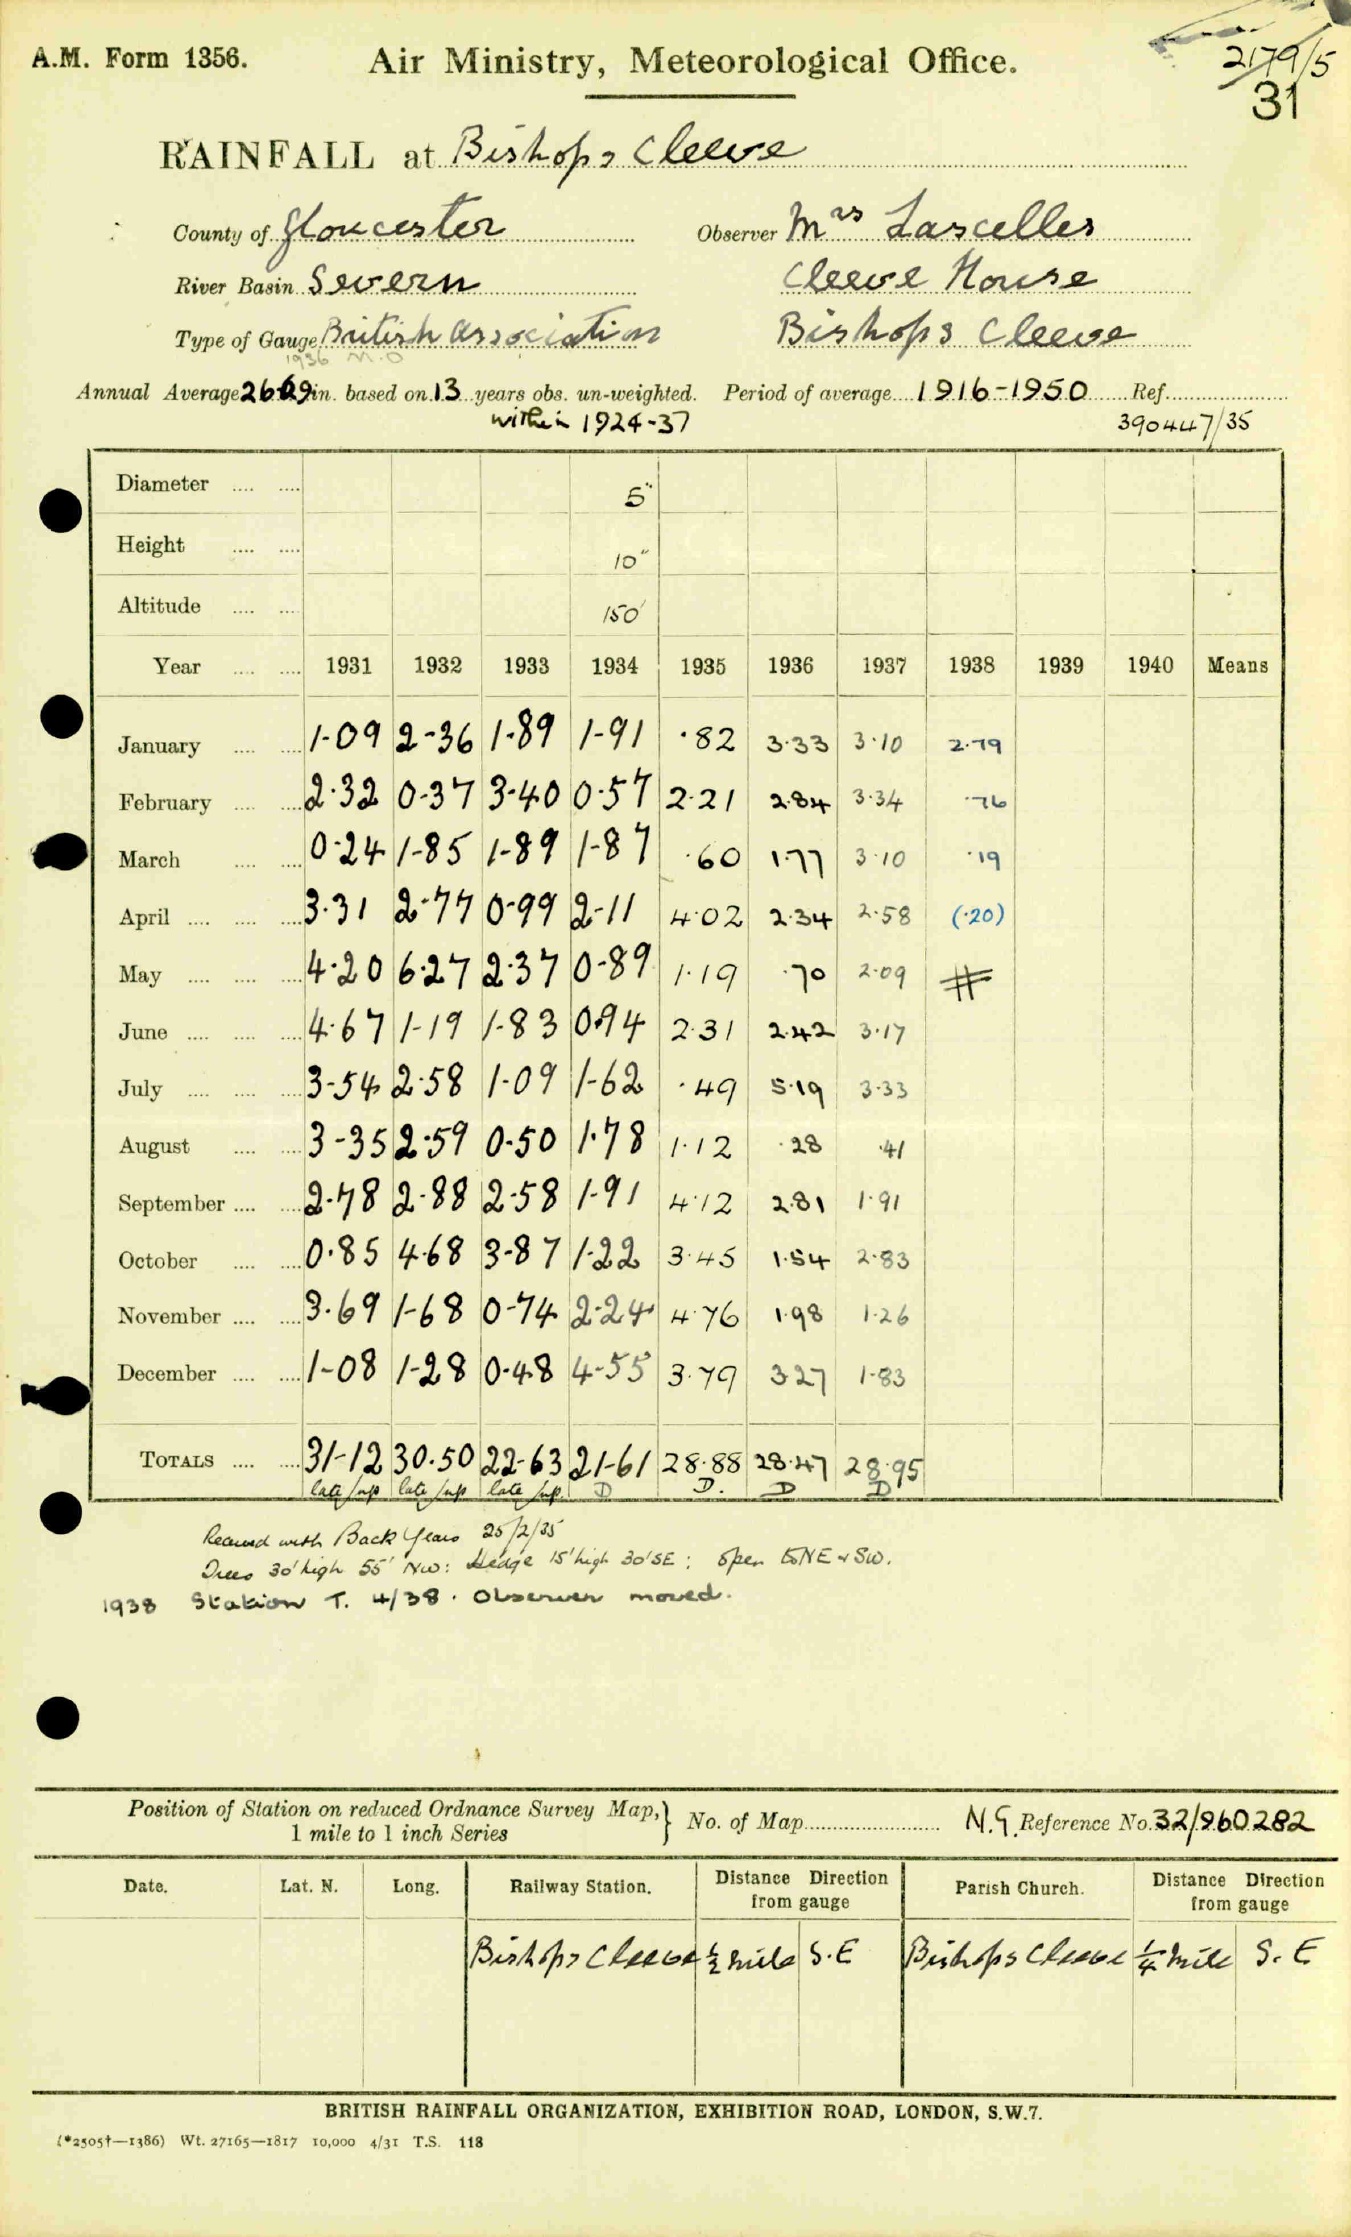 A.M. Form 1356.
Air Ministry, Meteorological Office.
2179/5
31
RAINFALL at Bishops Cleeve
County of Gloucester Observer Mrs Lascelles
River Basin Severn Cleeve House
Type of Gauge British Association Bishops Cleeve
1936 M.O
Annual Average in. based on 13 years obs. un-weighted. Period of average 1916-1950 Ref.
within 1924-37 390447/35
Diameter 5"
Height 10"
Altitude 150'
Year 1931 1932 1933 1934 1935 1936 1937 1938 1939 1940 Means
January 1-09 2-36 1-89 1-91 ·82 3·33 3·10 2·79
February 2·32 0-37 3-40 0-57 2·21 2·84 3·34 ·76
March 0-24 1-85 1-89 1-87 ·60 1·77 3·10 ·19
April 3·31 2-77 0-99 2-11 4·02 2·34 2·58 (·20)
May 4·20 6·27 2·37 0-89 1·19 ·70 2·09 #
June 4·67 1-19 1-83 0·94 2·31 2·42 3·17
July 3-54 2·58 1-09 1-62 ·49 5·19 3·33
August 3-35 2·59 0-50 1·78 1·12 ·28 ·41
September 2-78 2-88 2-58 1-91 4·12 2·81 1·91
October 0·85 4·68 3-87 1-22 3·45 1·54 2·83
November 3·69 1-68 0-74 2-24 4·76 1·98 1·26
December 1-08 1-28 0-48 4-55 3·79 3·27 1·83
TOTALS 31-12 30·50 22-63 21-61 28·88 28·47 28·95
late sup late sup late sup. D D. D D
Received with Back Years 25/2/35
Trees 30' high 55' NW: Hedge 15' high 30' SE: open to NE & SW.
1938 Station T. 4/38. Observer moved.
Position of Station on reduced Ordnance Survey Map,} No. of Map N.G. Reference No. 32/960282
1 mile to 1 inch Series
Date. Lat. N. Long. Railway Station. Distance Direction from gauge Parish Church. Distance Direction from gauge
Bishops Cleeve ½ mile S.E Bishops Cleeve ¼ mile S.E
BRITISH RAINFALL ORGANIZATION, EXHIBITION ROAD, LONDON, S.W.7.
(*2505†—1386) Wt. 27165—1817 10,000 4/31 T.S. 118